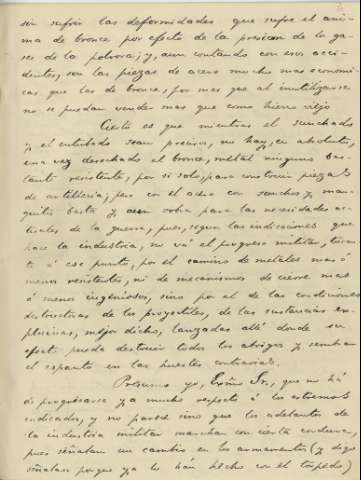 sin sufrir las deformidades que sufre el ani-
ma de bronce por efecto de la presion de los ga-
ses de la polvora; y, aun contando con esos acci-
dentes, son las piezas de acero mucho mas economi-
cas que las de bronce, por mas que al inutilizarse
no se puedan vender mas que como hierro viejo
Cierto es que mientras el sunchado
y el entubado sean precisos, no hay, en absoluto,
una vez desechado el bronce, metal ninguno bas-
tante resistente, por si solo, para construir piezas
de artilleria; pero con el acero con sunchos y man-
guitos basta y aun sobra para las necesidades ac-
tuales de la guerra, pues, segun las indicaciones que
hace la industria, no vá el progreso militar,
á ese punto, por el camino de metales mas ó
menos resistentes, ni de mecanismos de cierre mas
ó menos ingeniosos, sino por el de las condiciones
destructivas de los proyectiles, de las sustancias ex-
plosivas, mejor dicho, lanzadas allá donde su
efecto pueda destruir todos los abrigos y sembrar
el espanto en las huestes contrarias.
Presumo yo, Exmo Sr, que no há
de progresarse ya mucho respecto á los extremos
indicados, y no parece sino que los adelantos de
la industria militar marchan con cierta cordura,
pues señalan un cambio en los armamentos (y digo
señalan porque ya lo han hecho con el torpedo)